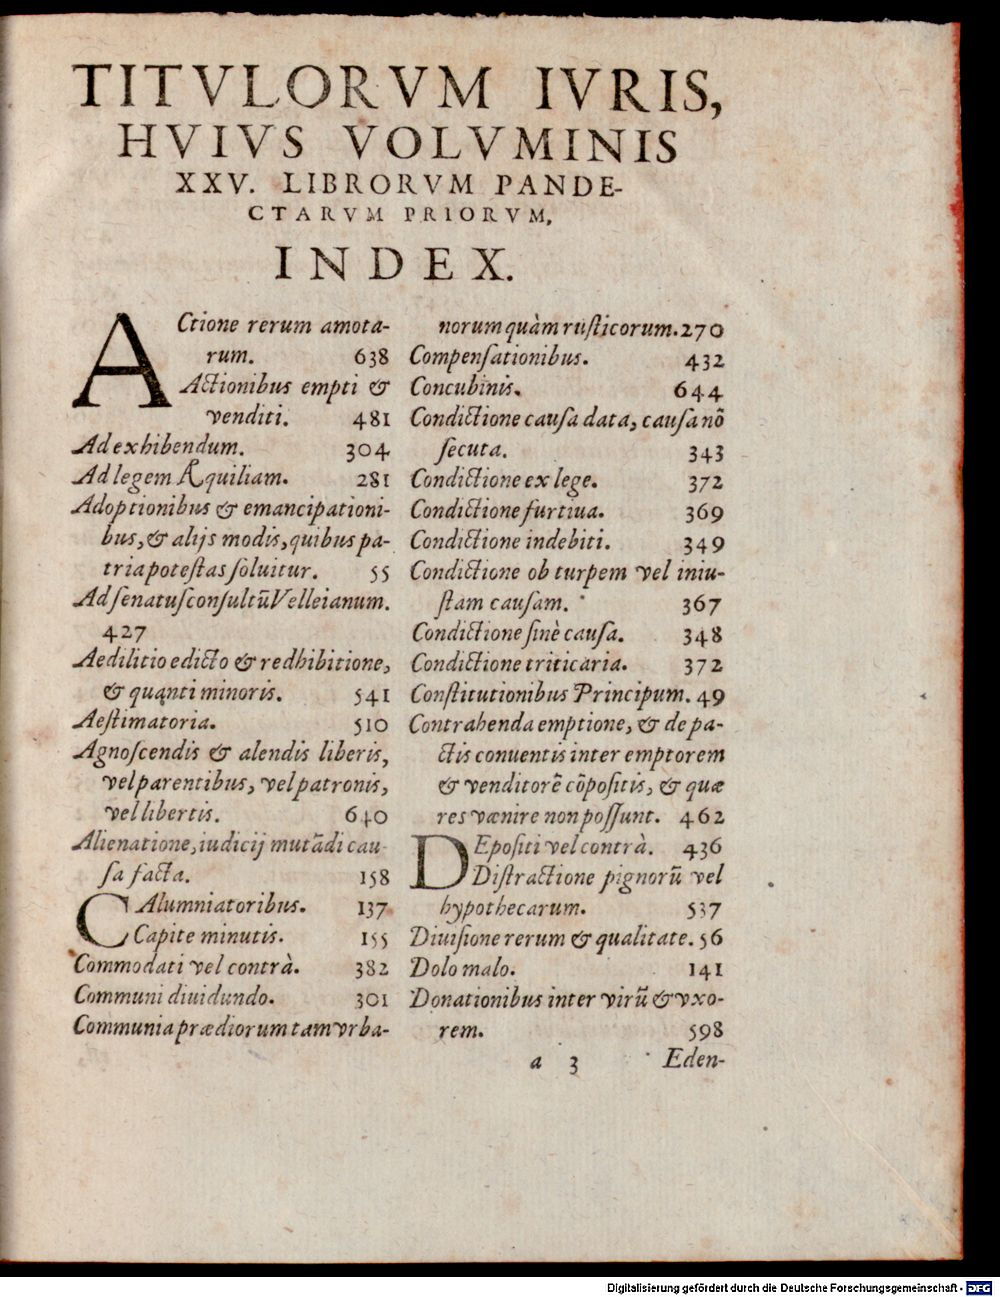 TITVLORVM IVRIS,
HVIVS VOLVMINIS
XXV. LIBRORVM PANDE-
CTARVM PRIORVM,
INDEX.
ACtione rerum amota-
rum. 638
Actionibus empti & 
venditi. 481
Ad exhibendum. 304
Ad legem Aquiliam. 281
Adoptionibus & emancipationi-
bus, & alijs modis, quibus pa-
tria potestas soluitur. 55
Ad senatusconsultū Velleianum.
427
Aedilitio edicto & redhibitione,
& quanti minoris. 541
Aestimatoria. 510
Agnoscendis & alendis liberis,
vel parentibus, vel patronis,
vel libertis. 640
Alienatione, iudicij mutādi cau-
sa facta. 158
CAlumniatoribus. 137
Capite minutis. 155
Commodati vel contrà. 382
Communi diuidundo. 301
Communia prædiorum tam vrba-
norum quàm rusticorum. 270
Compensationibus. 432
Concubinis. 644
Condictione causa data, causa nō
secuta. 343
Condictione ex lege. 372
Condictione furtiua. 369
Condictione indebiti. 349
Condictione ob turpem vel iniu-
stam causam. 367
Condictione sinè causa. 348
Condictione triticaria. 372
Constitutionibus Principum. 49
Contrahenda emptione, & de pa-
ctis conuentis inter emptorem
& venditorē cōpositis, & quæ
res vænire non possunt. 462
DEpositi vel contrà. 436
Distractione pignorū vel
hypothecarum. 537
Diuisione rerum & qualitate. 56
Dolo malo. 141
Donationibus inter virū & vxo-
rem. 598
a 3 Eden-
Digitalisierung gefördert durch die Deutsche Forschungsgemeinschaft - DFG